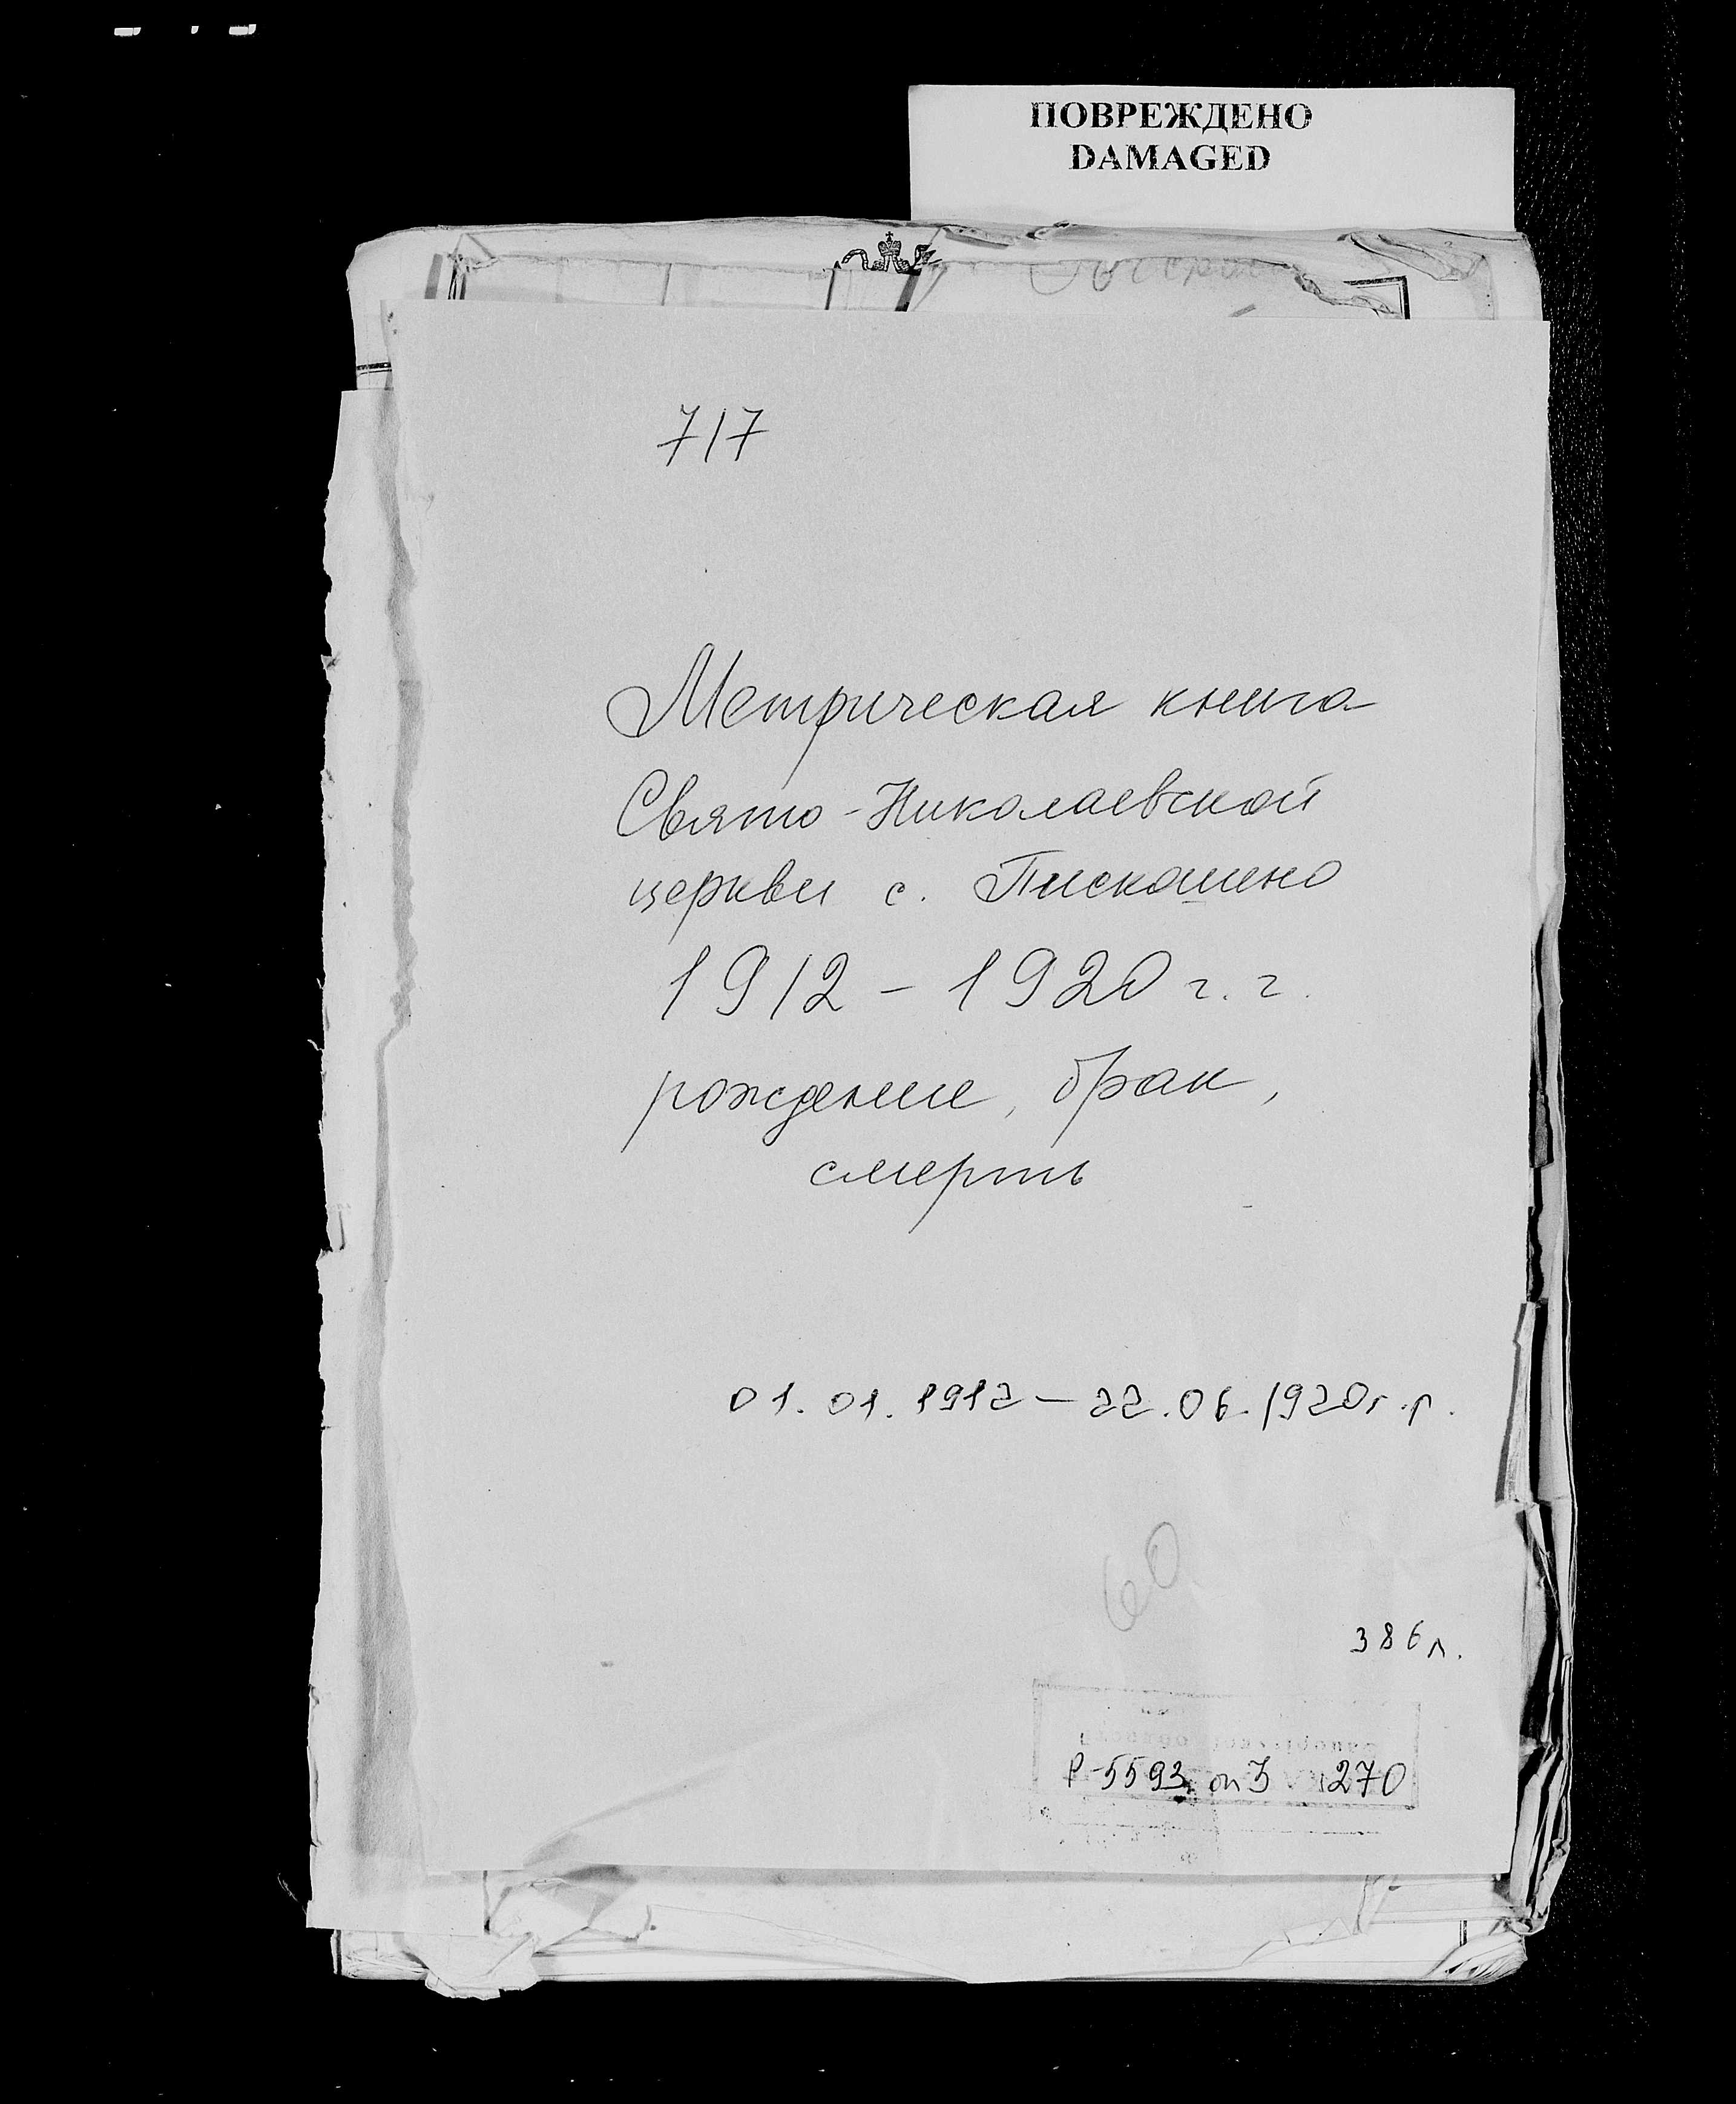 ПОВРЕЖДЕНО
DAMAGED
717
Метрическая книга
Свято-Николаевской
церкви с. Пискошино
1912 - 1920 г. г.
рождение, брак,
смерть
01.01.1912 - 22.06.1920 г.г.
60
386 л.
Р-5593 оп 3 270